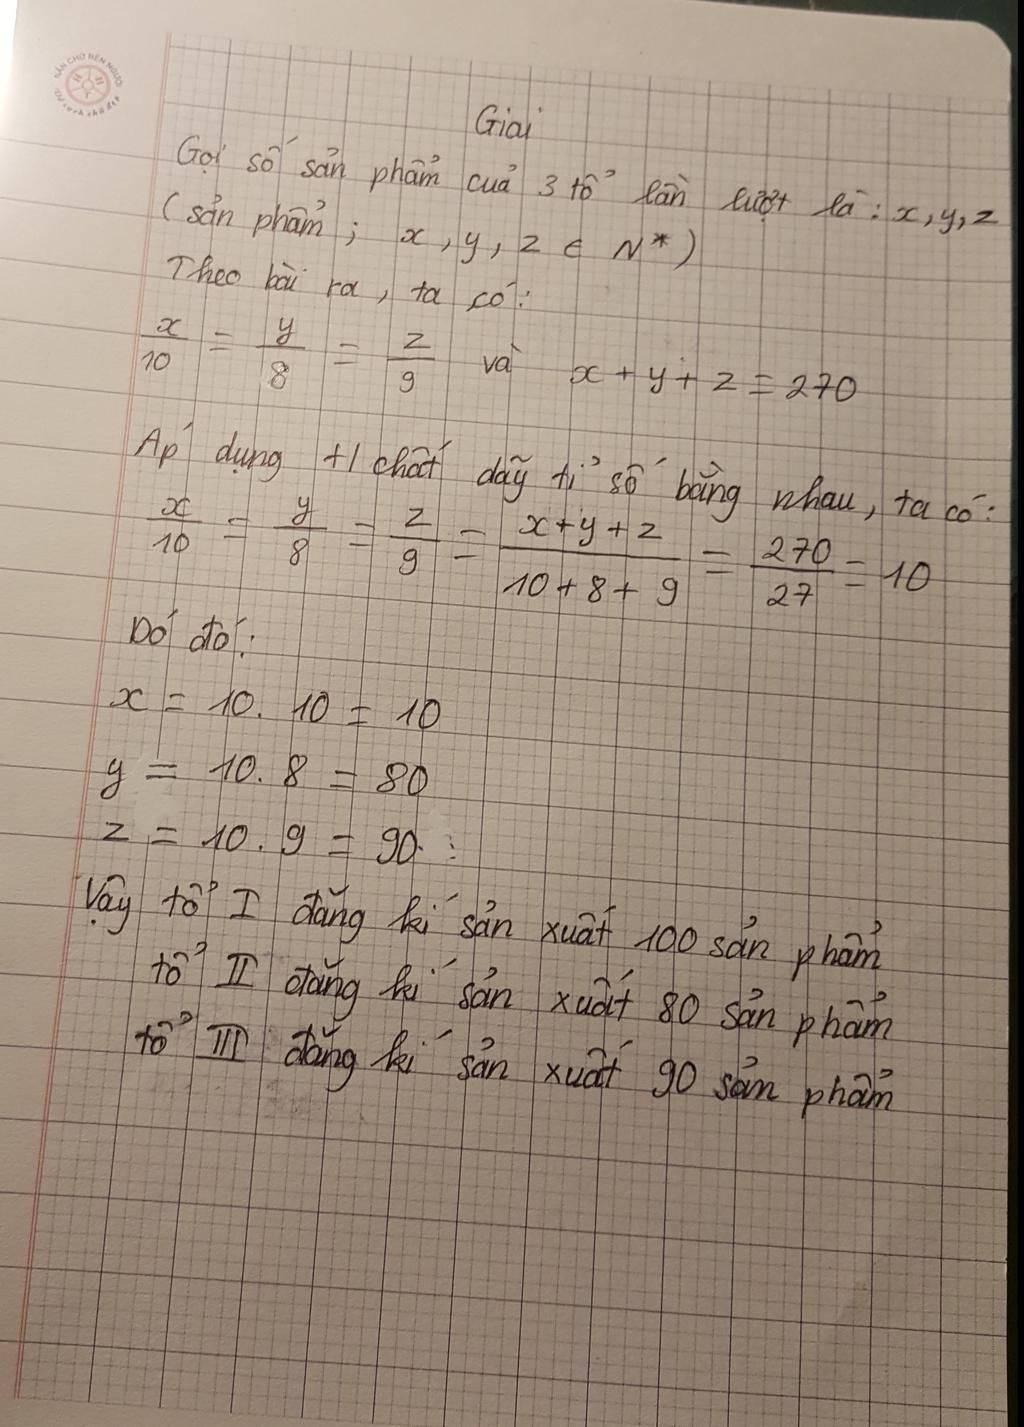 NẮN CHỮ RÈN NGƯỜI
Giải
Gọi số sản phẩm cuả 3 tổ lần lượt là: x, y, z
(sản phẩm; x, y, z ∈ N*)
Theo bài ra, ta có:
x/10 = y/8 = z/9 và x + y + z = 270
Áp dụng t/chất dãy tỉ số bằng nhau, ta có:
x/10 = y/8 = z/9 = x+y+z/10+8+9 = 270/27 = 10
Dó đó:
x = 10. 10 = 10
y = 10. 8 = 80
z = 10. 9 = 90
Vậy tổ I đăng kí sản xuất 100 sản phẩm
tổ II đăng kí sản xuất 80 sản phẩm
tổ III đăng kí sản xuất 90 sản phẩm